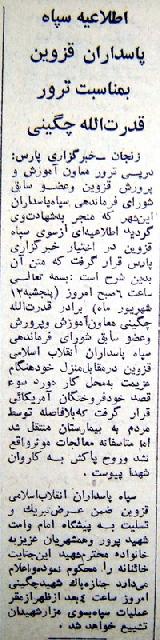 اطلاعیه سپاه
پاسداران قزوین
بمناسبت ترور
قدرت‌الله چگینی
زنجان ـ خبرگزاری پارس:
درپی ترور معاون آموزش و
پرورش قزوین وعضو سابق
شورای فرماندهی سپاه‌پاسداران
این‌شهر که منجر به‌شهادت‌وی
گردید اطلاعیه‌ای ازسوی سپاه
قزوین در اختیار خبرگزاری
پارس قرار گرفت که متن آن
بدین شرح است : بسمه تعالی
ساعت ۶صبح امروز (پنجشنبه۱۲
شهریور ماه) برادر قدرت‌الله
چگینی معاون‌آموزش وپرورش
وعضو سابق شورای فرماندهی
سپاه پاسداران انقلاب اسلامی
قزوین درمقابل‌منزل خودهنگام
عزیمت به‌محل کار مورد سوء
قصد خودفروختگان آمریکائی
قرار گرفت که‌بلافاصله توسط
مردم به بیمارستان منتقل شد
اما متاسفانه معالجات موثرواقع
نشد وروح پاکش به کاروان
شهدا پیوست .
سپاه پاسداران انقلاب‌اسلامی
قزوین ضمن عرض‌تبریک و
تسلیت به پیشگاه امام وامت
شهید پرور وهمشهریان عزیزبه
خانواده محترم‌شهید این‌جنایت
خائنانه را محکوم نموده‌واعلام
می‌دارد جنازه‌پاک شهیدچگینی
امروز ساعت ۵بعد ازظهرازمقر
عملیات سپاه‌بسوی مزارشهیدان
تشییع خواهد شد .